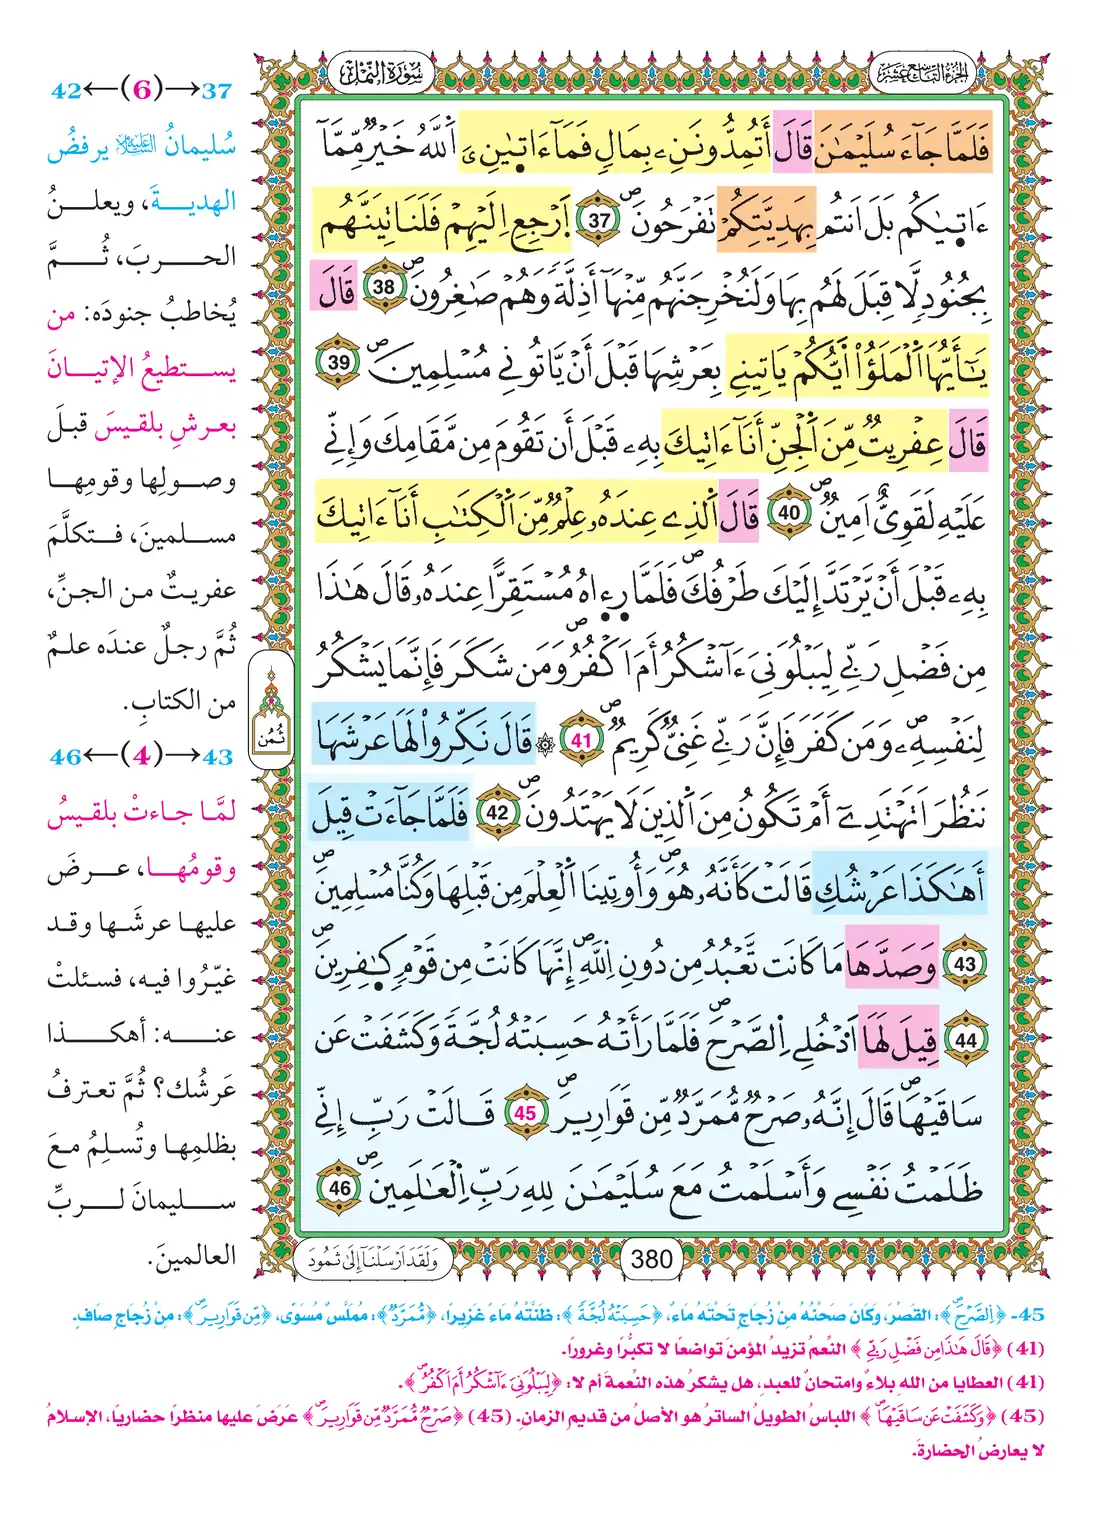 الجزء التاسع عشر
سورة النمل
فَلَمَّا جَآءَ سُلَيْمَٰنَ قَالَ أَتُمِدُّونَنِۦ بِمَالٍ فَمَآ ءَاتٰىٰنِۦَ اَ۬للَّهُ خَيْرٌ مِّمَّآ
ءَاتٰىٰكُم بَلَ اَنتُم بِهَدِيَّتِكُمْ تَفْرَحُونَۖ 37 اَ۪رْجِعِ اِلَيْهِمْ فَلَنَاتِيَنَّهُم
بِجُنُودٖ لَّا قِبَلَ لَهُم بِهَا وَلَنُخْرِجَنَّهُم مِّنْهَآ أَذِلَّةٗ وَهُمْ صَٰغِرُونَۖ 38 قَالَ
يَٰٓأَيُّهَا اَ۬لْمَلَؤُاْ اَيُّكُمْ يَاتِينِے بِعَرْشِهَا قَبْلَ أَنْ يَّاتُونِے مُسْلِمِينَۖ 39
قَالَ عِفْرِيتٌ مِّنَ اَ۬لْجِنِّ أَنَآ ءَاتِيكَ بِهِۦ قَبْلَ أَن تَقُومَ مِن مَّقَامِكَ وَإِنِّے
عَلَيْهِ لَقَوِيٌّ اَمِينٌۖ 40 قَالَ اَ۬لذِے عِندَهُۥ عِلْمٌ مِّنَ اَ۬لْكِتَٰبِ أَنَآ ءَاتِيكَ
بِهِۦ قَبْلَ أَنْ يَّرْتَدَّ إِلَيْكَ طَرْفُكَۖ فَلَمَّا رِء۪اهُ مُسْتَقِرّاً عِندَهُۥ قَالَ هَٰذَا
مِن فَضْلِ رَبِّے لِيَبْلُوَنِيَ ءَآشْكُرُ أَمَ اَكْفُرُۖ وَمَن شَكَرَ فَإِنَّمَا يَشْكُرُ
لِنَفْسِهِۦۖ وَمَن كَفَرَ فَإِنَّ رَبِّے غَنِيٌّ كَرِيمٌۖ 41 ۞ قَالَ نَكِّرُواْ لَهَا عَرْشَهَا
نَنظُرَ اَتَهْتَدِےٓ أَمْ تَكُونُ مِنَ اَ۬لذِينَ لَا يَهْتَدُونَۖ 42 فَلَمَّا جَآءَتْ قِيلَ
أَهَٰكَذَا عَرْشُكِ قَالَتْ كَأَنَّهُۥ هُوَۖ وَأُوتِينَا اَ۬لْعِلْمَ مِن قَبْلِهَا وَكُنَّا مُسْلِمِينَۖ
43 وَصَدَّهَا مَا كَانَت تَّعْبُدُ مِن دُونِ اِ۬للَّهِۖ إِنَّهَا كَانَتْ مِن قَوْمٖ كٰ۪فِرِينَۖ
44 قِيلَ لَهَا اَ۟دْخُلِے اِ۬لصَّرْحَۖ فَلَمَّا رَأَتْهُ حَسِبَتْهُ لُجَّةٗ وَكَشَفَتْ عَن
سَاقَيْهَاۖ قَالَ إِنَّهُۥ صَرْحٌ مُّمَرَّدٌ مِّن قَوَارِيرَۖ 45 قَالَتْ رَبِّ إِنِّے
ظَلَمْتُ نَفْسِے وَأَسْلَمْتُ مَعَ سُلَيْمَٰنَ لِلهِ رَبِّ اِ۬لْعَٰلَمِينَۖ 46
ثمن
وَلَقَدَ اَرْسَلْنَآ إِلَىٰ ثَمُودَ
380
37→(6)←42
سُليمانُ عليه السلام يرفضُ
الهديةَ، ويعلنُ
الحربَ، ثُمَّ
يُخاطبُ جنودَه: من
يستطيعُ الإتيانَ
بعرشِ بلقيسَ قبلَ
وصولِها وقومِها
مسلمينَ، فتكلَّمَ
عفريتٌ من الجنِّ،
ثُمَّ رجلٌ عندَه علمٌ
من الكتابِ.
43→(4)←46
لمَّا جاءتْ بلقيسُ
وقومُها، عرضَ
عليها عرشَها وقد
غيّرُوا فيه، فسئلتْ
عنه: أهكذا
عَرشُك؟ ثُمَّ تعترفُ
بظلمِها وتُسلِمُ معَ
سليمانَ لربِّ
العالمينَ.
45- ﴿اِ۬لصَّرْحَۖ﴾: القصْرَ، وكَانَ صَحْنُهُ مِنْ زُجَاجٍ تَحْتَهُ مَاءٌ، ﴿حَسِبَتْهُ لُجَّةٗ﴾: ظَنَّتْهُ مَاءً غَزِيرًا، ﴿مُّمَرَّدٌ﴾: مُمَلَّسٌ مُسَوّى، ﴿مِّن قَوَارِيرَۖ﴾: مِنْ زُجَاجٍ صَافٍ.
(41) ﴿قَالَ هَٰذَا مِن فَضْلِ رَبِّے﴾ النِّعمُ تزيدُ المؤمنَ تواضعًا لا تكبُّرًا وغرورًا.
(41) العطايا من اللهِ بلاءٌ وامتحانٌ للعبدِ، هل يشكرُ هذه النِّعمةَ أم لا: ﴿لِيَبْلُوَنِيَ ءَآشْكُرُ أَمَ اَكْفُرُۖ﴾.
(45) ﴿وَكَشَفَتْ عَن سَاقَيْهَاۖ﴾ اللباسُ الطويلُ الساترُ هو الأصلُ من قديمِ الزمانِ. (45) ﴿صَرْحٌ مُّمَرَّدٌ مِّن قَوَارِيرَۖ﴾ عَرَضَ عليها منظرًا حضاريًا، الإسلامُ
لا يعارضُ الحضارةَ.